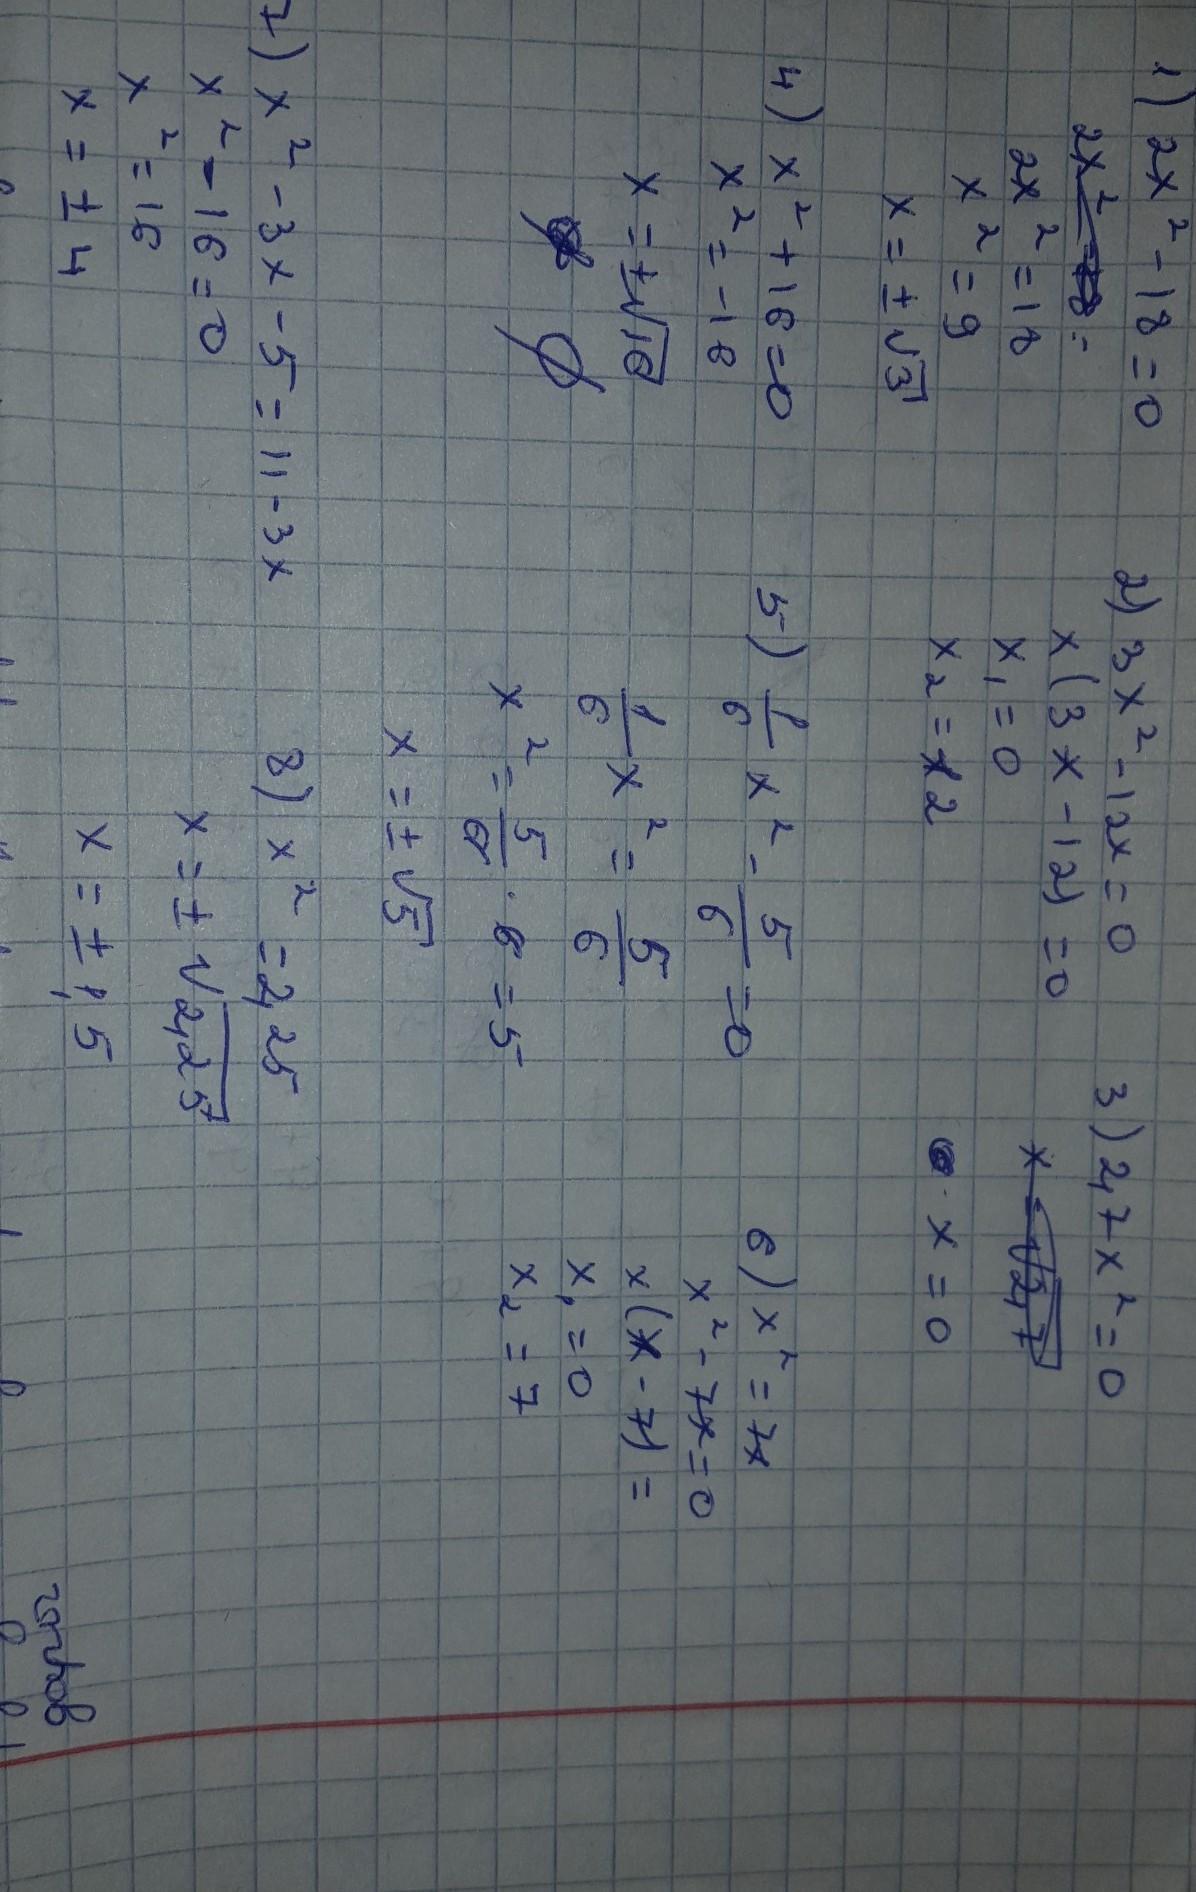 1) 2x² - 18 = 0
2x² = 18
x² = 9
x = ± √3
2) 3x² - 12x = 0
x(3x - 12) = 0
x₁ = 0
x₂ = 2
3) 2,7x² = 0
x √2,7
x = 0
4) x² + 16 = 0
x² = -16
x = ±√16
∅
5) 1/6 x² - 5/6 = 0
1/6 x² = 5/6
x² = 5/6 · 6 = 5
x = ± √5
6) x² = 7x
x² - 7x = 0
x(x - 7) =
x₁ = 0
x₂ = 7
7) x² - 3x - 5 = 11 - 3x
x² - 16 = 0
x² = 16
x = ± 4
8) x² = 2,25
x = ± √2,25
x = ± 1,5